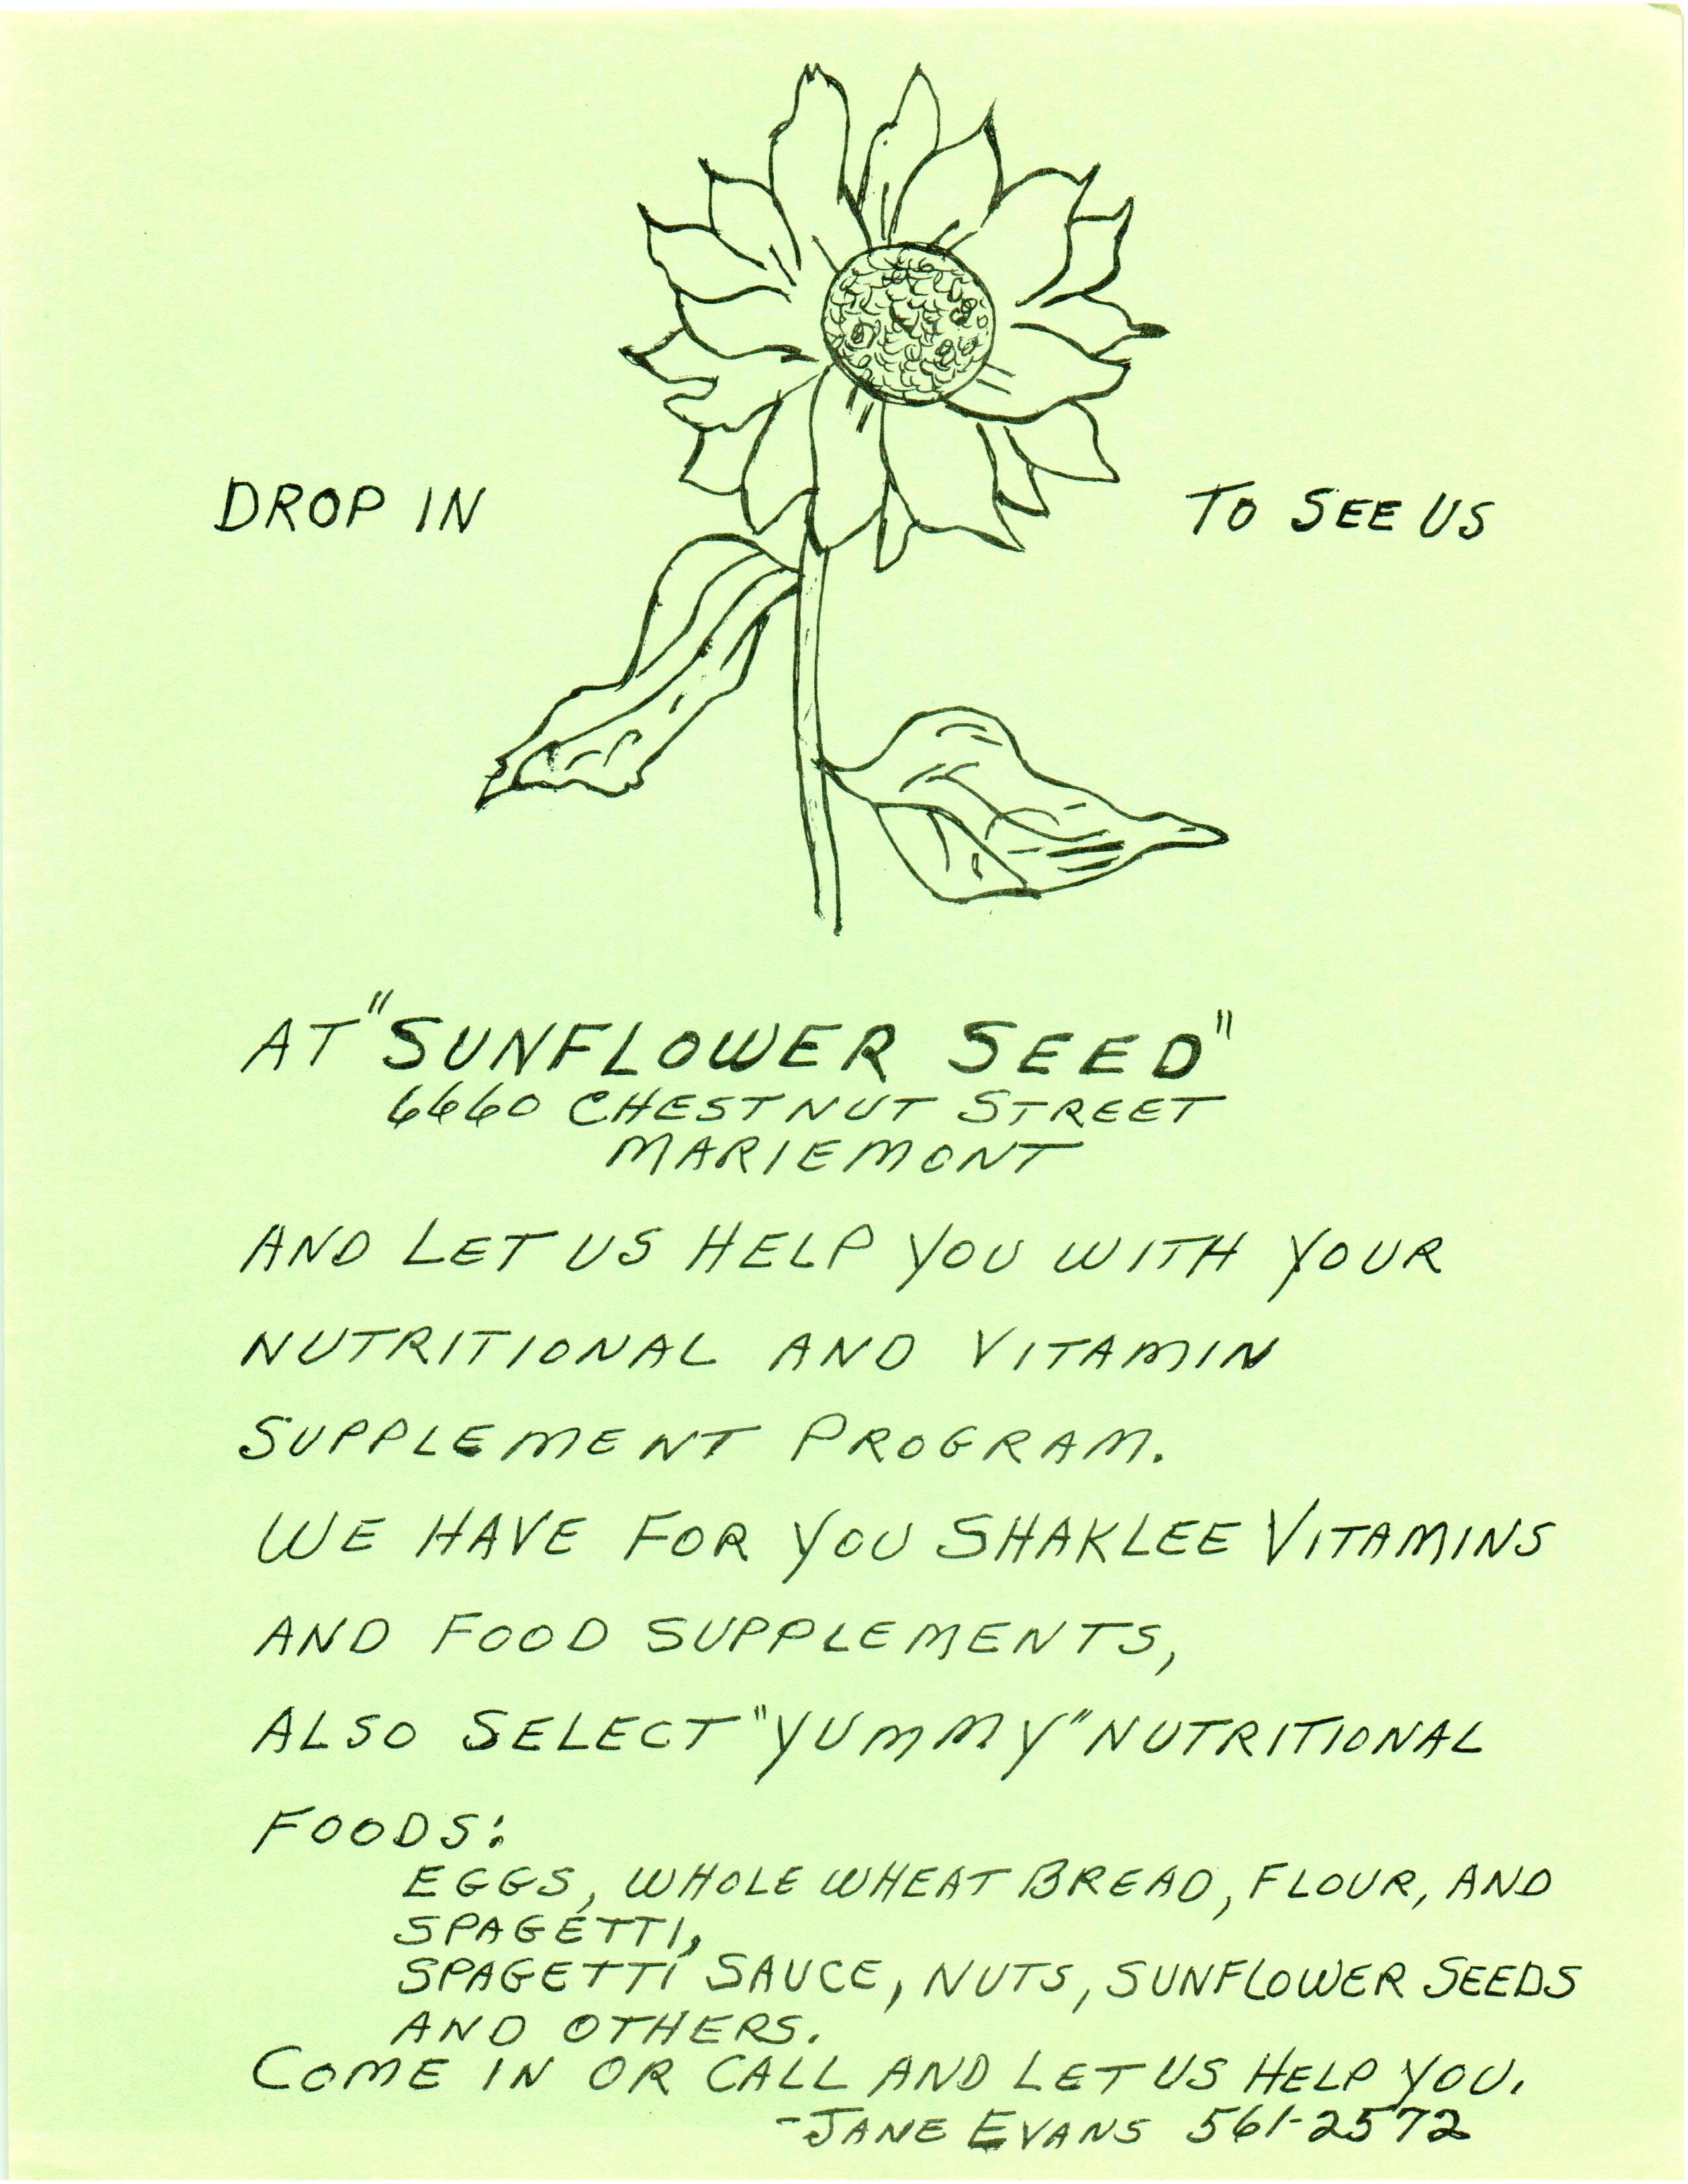 DROP IN TO SEE US
AT "SUNFLOWER SEED"
6660 CHESTNUT STREET
MARIEMONT
AND LET US HELP YOU WITH YOUR
NUTRITIONAL AND VITAMIN
SUPPLEMENT PROGRAM.
WE HAVE FOR YOU SHAKLEE VITAMINS
AND FOOD SUPPLEMENTS,
ALSO SELECT "YUMMY" NUTRITIONAL
FOODS:
EGGS, WHOLE WHEAT BREAD, FLOUR, AND
SPAGETTI,
SPAGETTI SAUCE, NUTS, SUNFLOWER SEEDS
AND OTHERS.
COME IN OR CALL AND LET US HELP YOU.
-JANE EVANS 561-2572